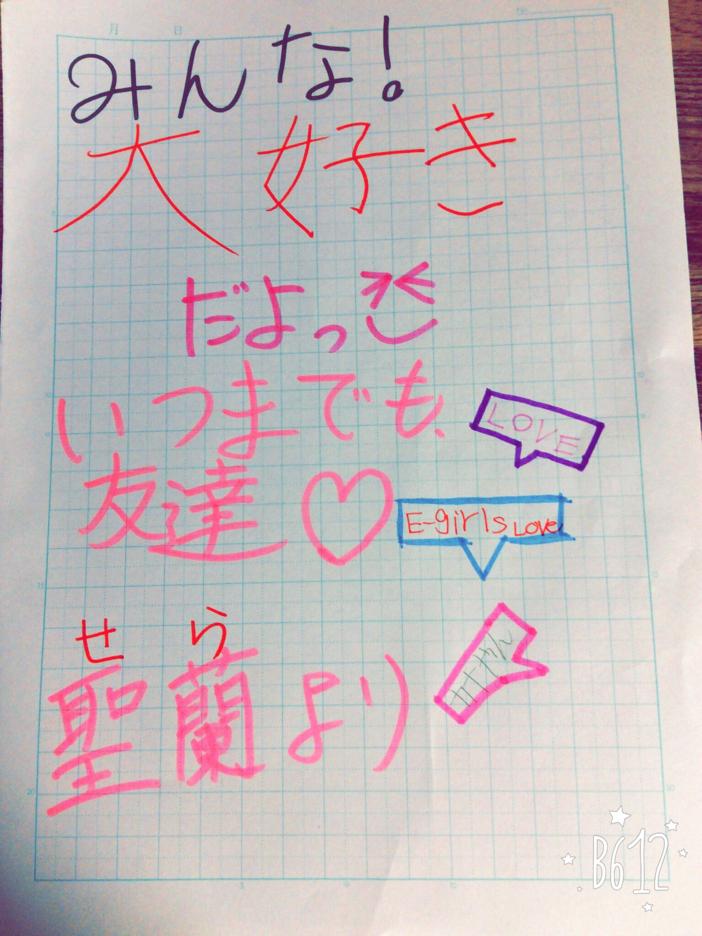 月 日
みんな!
大好き
だよっ
いつまでも、
LOVE
友達♡
E-girls LOVE
せら
聖蘭より
B612